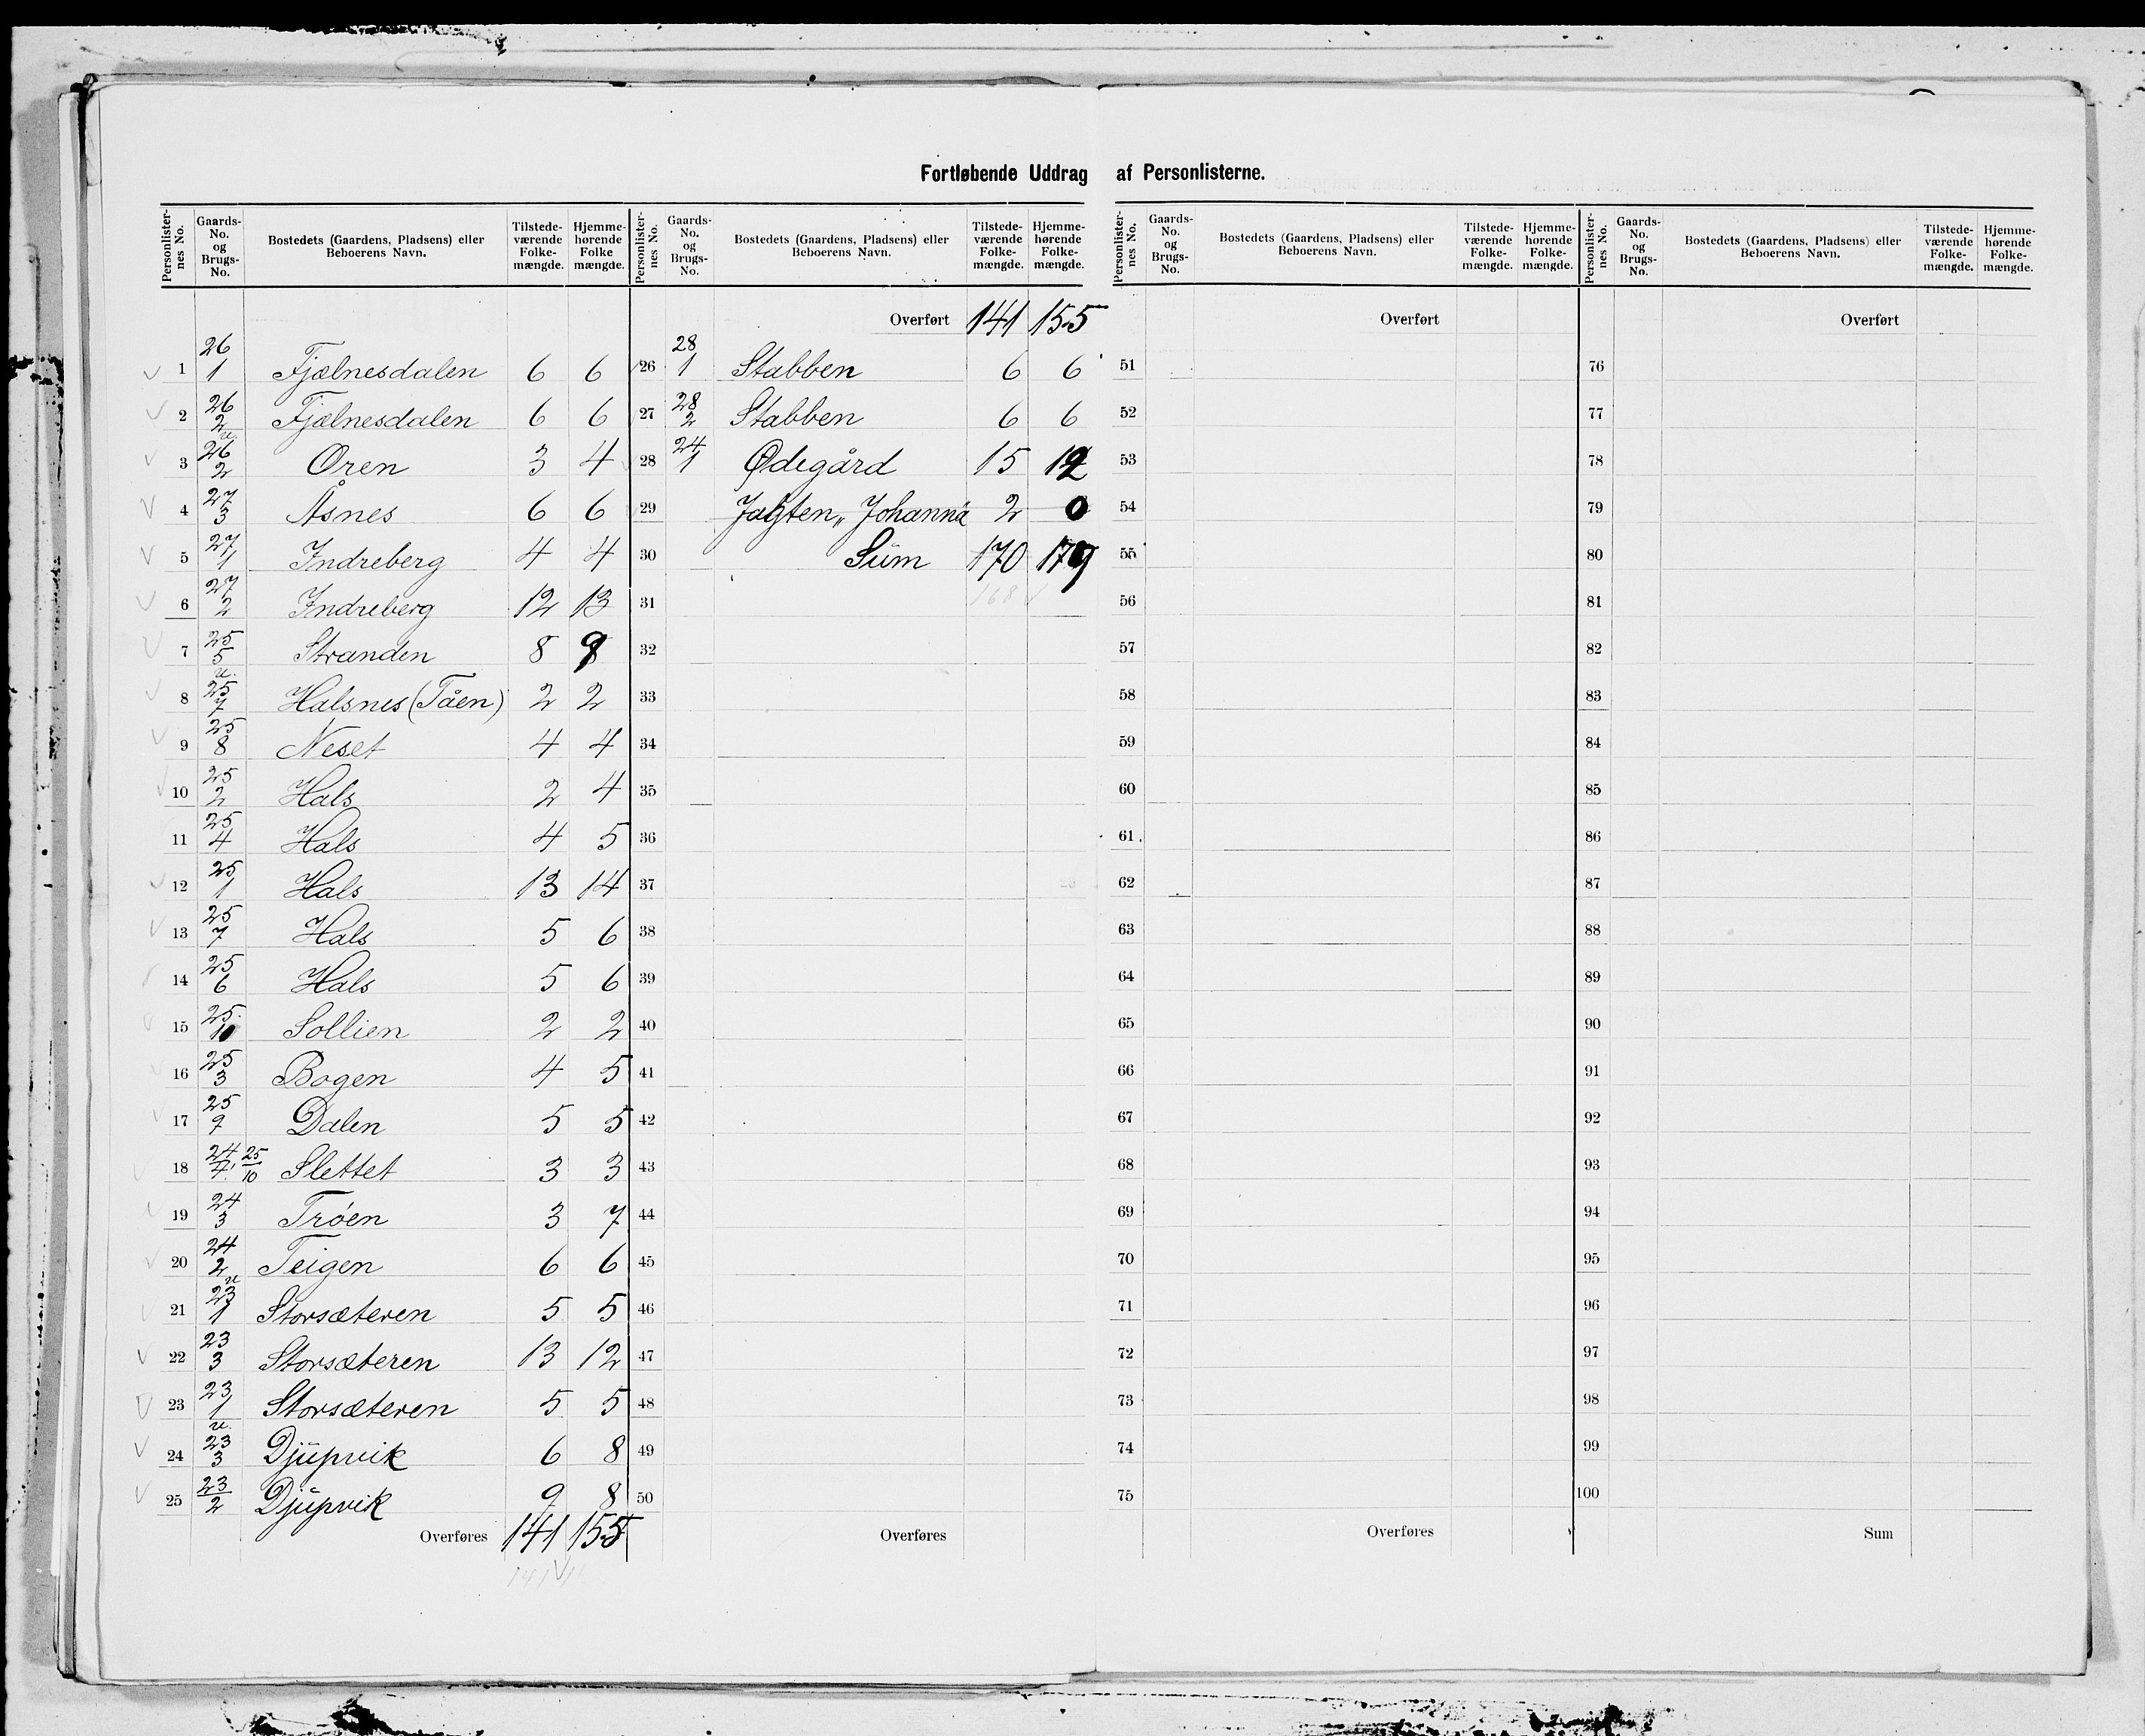 Fortløbende Uddrag af Personlisterne.
Personlister-nes No. | Gaards-No. og Brugs-No. | Bostedets (Gaardens, Pladsens) eller Beboerens Navn. | Tilstede-værende Folke-mængde. | Hjemme-hørende Folke mængde.
1 26/1 Fjælnesdalen 6 6
2 26/2 Fjælnesdalen 6 6
3 26/2 Øren 3 4
4 27/3 Åsnes 6 6
5 27/1 Indreberg 4 4
6 27/2 Indreberg 12 13
7 25/5 Stranden 8 9
8 25/7 Halsnes (Tåen) 2 2
9 25/8 Neset 4 4
10 25/2 Hals 2 4
11 25/4 Hals 4 5
12 25/1 Hals 13 14
13 25/7 Hals 5 6
14 25/6 Hals 5 6
15 25/10 Sollien 2 2
16 25/3 Bogen 4 5
17 25/9 Dalen 5 5
18 24/4 25/10 Slettet 3 3
19 24/3 Trøen 3 7
20 24/2 Teigen 6 6
21 23/1 Storsæteren 5 5
22 23/3 Storsæteren 13 12
23 23/1 Storsæteren 5 5
24 23/3 Djupvik 6 8
25 23/2 Djupvik 9 8
Overføres 141 155
141
Personlister-nes No. | Gaards-No. og Brugs-No. | Bostedets (Gaardens, Pladsens) eller Beboerens Navn. | Tilstede-værende Folke-mængde. | Hjemme-hørende Folke-mængde.
Overført 141 155
26 28/1 Stabben 6 6
27 28/2 Stabben 6 6
28 24/1 Ødegård 15 12
29 Jagten „Johanna" 2 0
30 Sum 170 179
31 168
32
33
34
35
36
37
38
39
40
41
42
43
44
45
46
47
48
49
50
Overføres
Personlister-nes No. | Gaards-No. og Brugs-No. | Bostedets (Gaardens, Pladsens) eller Beboerens Navn. | Tilstede-værende Folke-mængde. | Hjemme-hørende Folke-mængde.
Overført
51
52
53
54
55
56
57
58
59
60
61
62
63
64
65
66
67
68
69
70
71
72
73
74
75
Overføres
Personlister-nes No. | Gaards-No. og Brugs-No. | Bostedets (Gaardens, Pladsens) eller Beboerens Navn. | Tilstede-værende Folke-mængde. | Hjemme-hørende Folke-mængde.
Overført
76
77
78
79
80
81
82
83
84
85
86
87
88
89
90
91
92
93
94
95
96
97
98
99
100
Sum